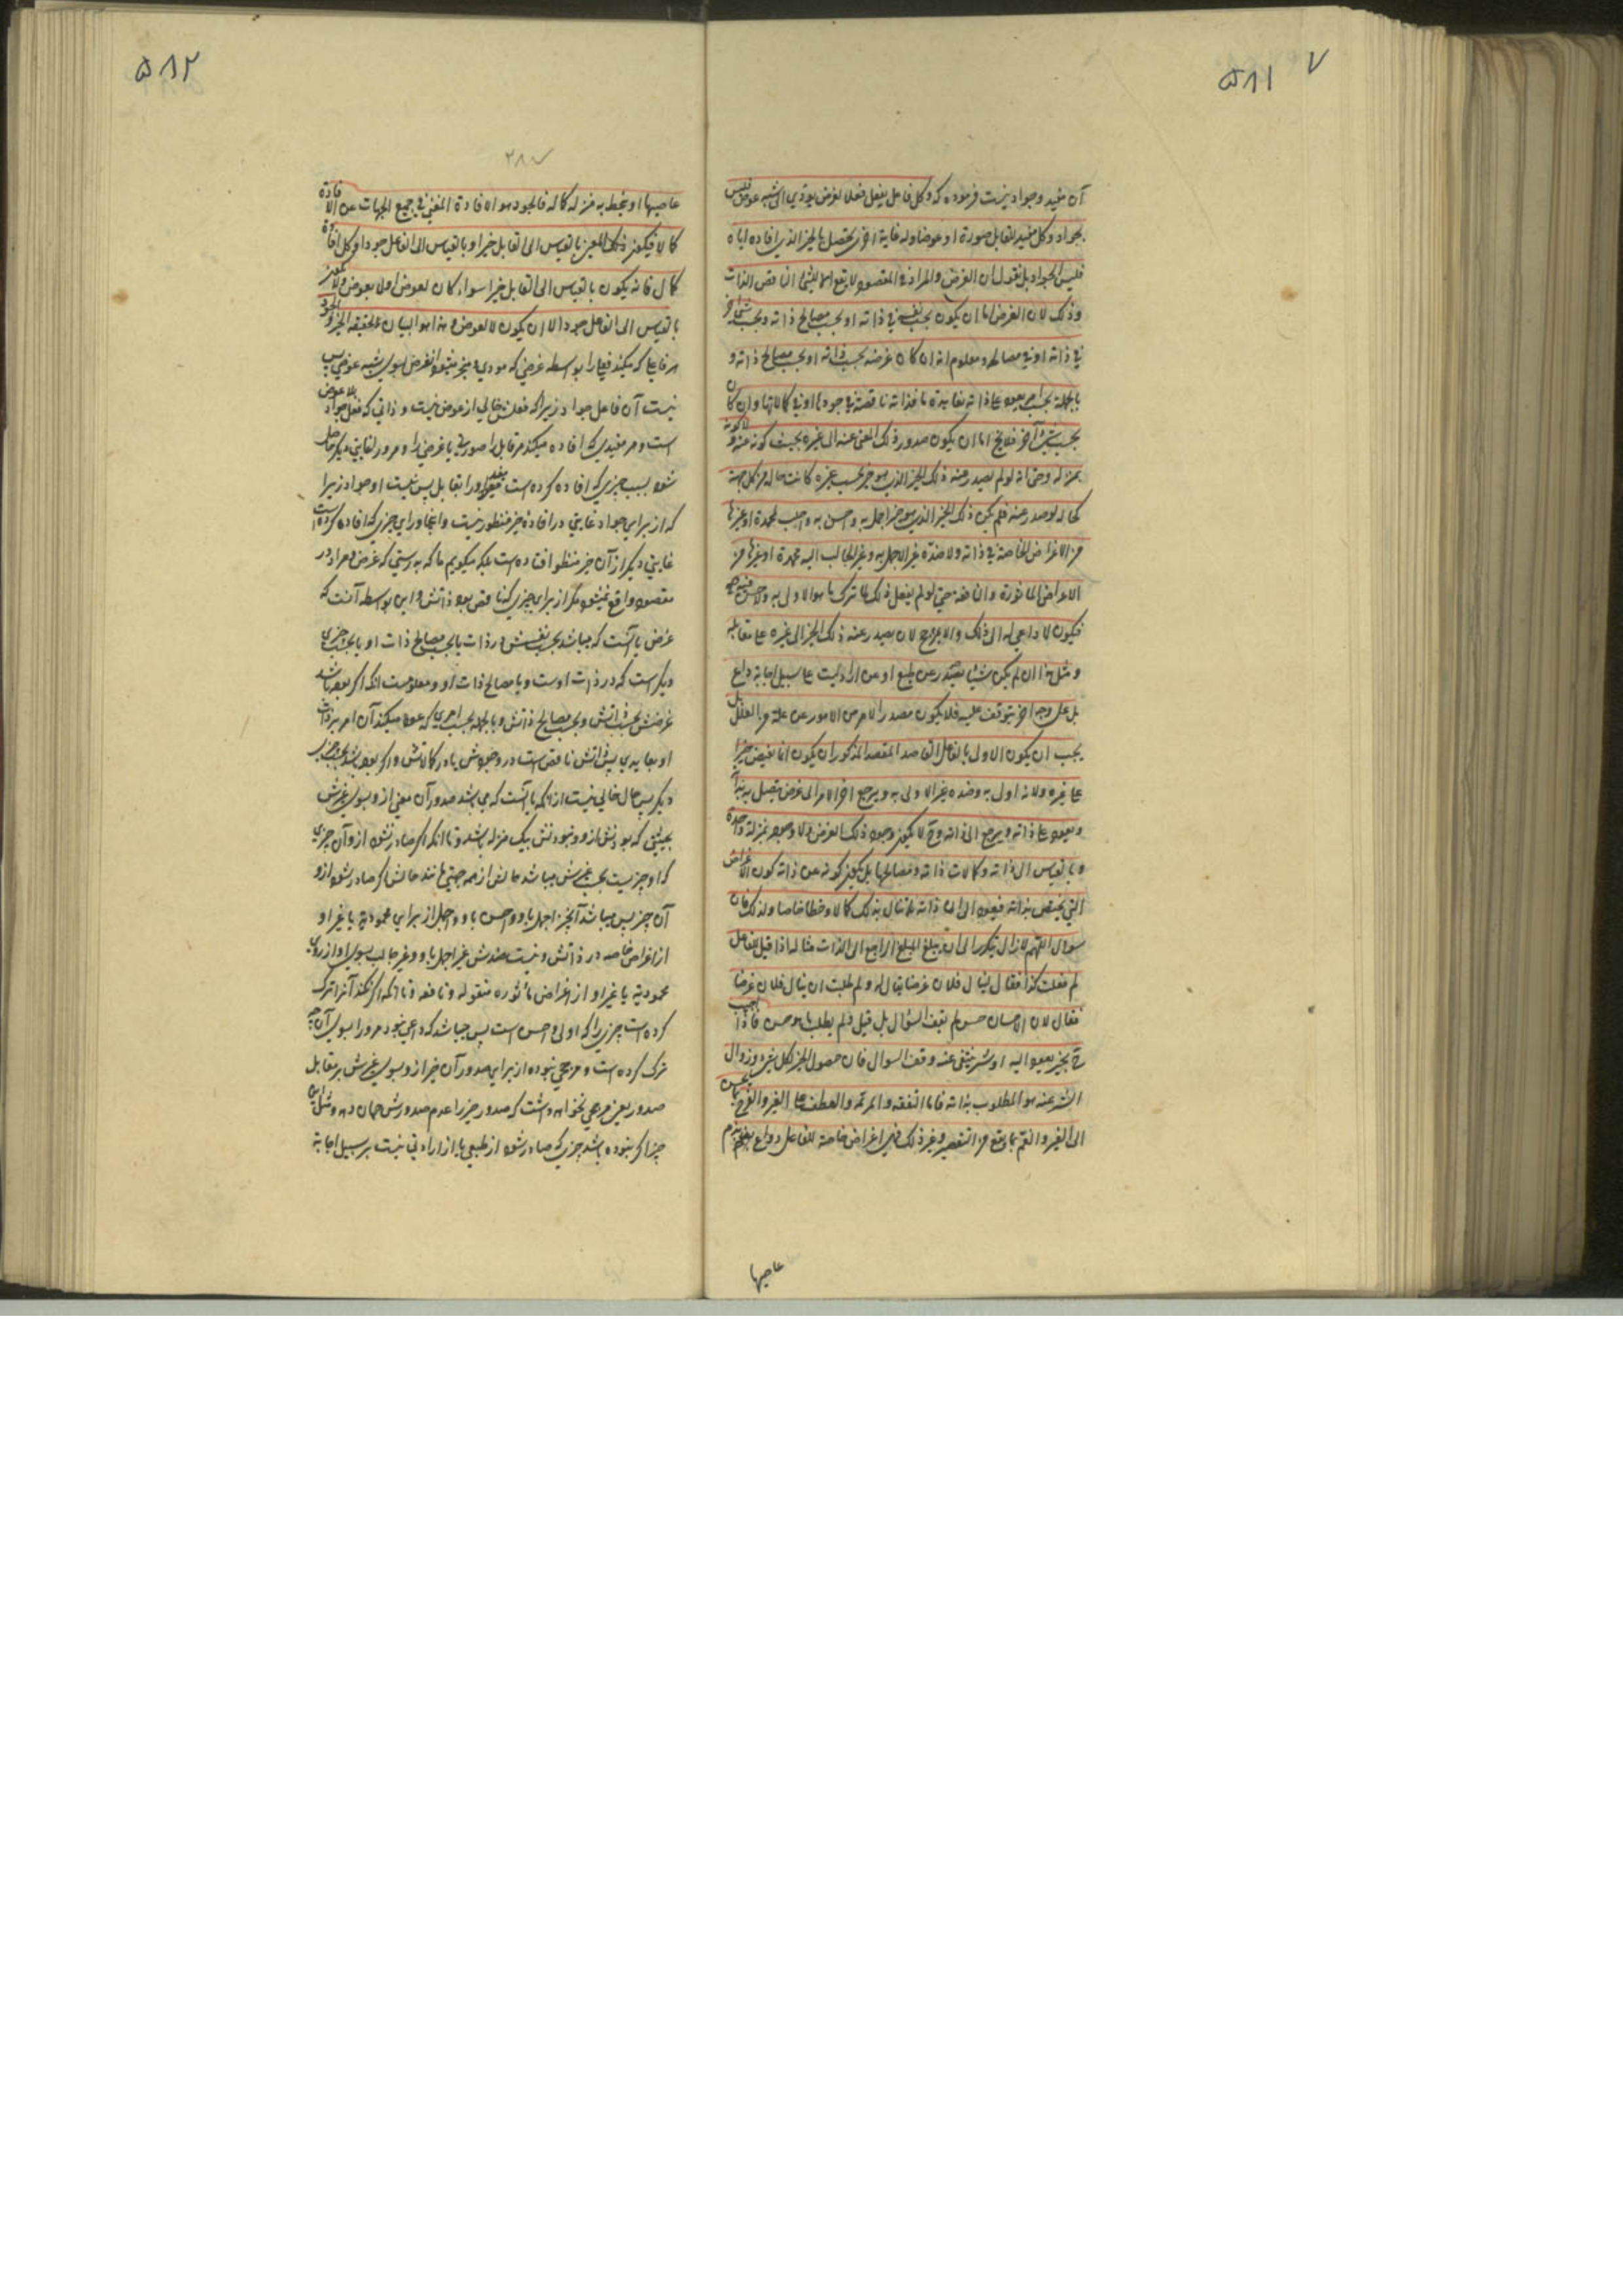 ۵۸۱
آن مفید وجواد نیست فرموده که وکل فاعل یفعل فعلا لغرض یؤدی الی شبه عوض فلیس
بجواد وکل مفید للقابل صورة او عرضا وله غایة اخری تحصل بالخیر الذی افاده ایاه
فلیس بجواد بل نقول ان الغرض والمراد فی المقصود لا یقع الا للشیء الناقص الذات
وذلک لان الغرض اما ان یکون بحسب نفسه فی ذاته او بحسب مصالح ذاته او بحسب شیء آخر
فی ذاته او فی مصالحه ومعلوم انه ان کان غرضه بحسب ذاته او بحسب مصالح ذاته و
بالجملة بحسب امر یعود علی ذاته بفایدة ما فذاته ناقصة فی وجودها او فی کمالاتها وان کان
بحسب شیء آخر فلا یخ اما ان یکون صدور ذلک المعنی عنه الی غیره بحیث کونه عنه ولا کونه
بمنزلة وحتی انه لو لم یصدر عنه ذلک الخیر الذی هو خیر بحسب غیره کانت حاله من کل جهة
کحاله لو صدر عنه فلم یکن ذلک الخیر الذی هو خیر اجمل به واحسن به واجلب لمحمدة او غیرها
من الاغراض الخاصة فی ذاته ولا ضده غیر الاجمل به وغیر الجالب الیه محمدة او غیرها من
الاغراض الماثورة والنافعة حتی لو لم یفعل ذلک لما ترک ما هو الاولی به والاحسن به
فیکون لا داعی له الی ذلک ولا مرجح لان یصدر عنه ذلک الخیر الی غیره علی مقابله
ومثل هذا ان لم یکن شیئا یصدر عن طبع او عن ارادة لیست علی سبیل اجابة داع
بل علی وجه آخر یتوقف علیه فلا یکون مصدرا لامر من الامور عن علة من العلل بل
یجب ان یکون الاولی بالفاعل القاصد القصد المذکور ان یکون انما یفیض خیرا
علی غیره لانه اولی به وضده غیر الاولی به ویرجع آخر الامر الی غرض یتصل بذاته
ویعود علی ذاته ویرجع الی ذاته وح لا یکون وجود ذلک الغرض ولا وجوده بمنزلة واحدة
وبالقیاس الی ذاته وکمالات ذاته ومصالحها بل یکون کونه عن ذاته کون الاغراض
التی تختص بذاته فیعود الی ان ذاته تنال بذلک کمالا وحظا خاصا ولذلک فان
سؤال اللم لا یزال یتکرر الی ان یبلغ المبلغ الراجع الی الذات مثاله اذا قیل للفاعل
لم فعلت کذا فقال لینال فلان غرضا یقال له ولم طلبت ان ینال فلان غرضا
فقال لان الاحسان حسن لم یقف السؤال بل قیل ولم یطلب ما هو حسن فاذا اجیب
ح بخیر یعود الیه او شر ینتفی عنه وقف السؤال فان حصول الخیر لکل شیء وزوال
الشر عنه هو المطلوب بذاته فاما الشفقة والرحمة والعطف علی الغیر والفرح بما یحسن
الی الغیر والغم بما یقع من التقصیر وغیر ذلک فهی اغراض خاصة للفاعل ودواع
عاصیها
۵۸۲
۲۸۷
عاصیها او ینحط به منزلة کماله فالجود هو الافادة المعنی فی جمیع الجهات عن الافادة
کمالا فیکون ذلک المعنی بالقیاس الی القابل خیرا وبالقیاس الی الفاعل جودا وکل افادة
کمال فانه یکون بالقیاس الی القابل خیرا سواء کان بعوض او لا بعوض ولا یکون
بالقیاس الی الفاعل جودا الا ان یکون لا لعوض وهذا هو البیان لحقیقة الخیر والجود
هر فاعلی که میکند فعلی را بواسطه غرضی که مودی ومنجر میشود آن غرض بسوی شبه عوضی پس
نیست آن فاعل جواد زیرا که فعلش خالی از عوض نیست وذاتی که فعل جواد بلا عوض
است وهر مفیدی که افاده میکند مر قابل را صورتی یا عرضی را ومر او را غایتی دیگر حاصل
شود بسبب چیزی که افاده کرده است مفید او را بقابل پس نیست او جواد زیرا
که از برای جواد غایتی در افادۀ خیر منظور نیست واینجا ورای چیزی که افاده کرده است
غایتی دیگر از آن خیر منظور افتاده است بلکه میگویم ما که بدرستی که غرض ومراد در
مقصود واقع نمیشود مگر از برای چیزی که ناقص بود ذاتش واین بواسطه آنست که
غرض یا آنست که میباشد بحسب نفسش در ذات یا بحسب مصالح ذات او یا بحسب چیزی
دیگر است که در ذات اوست ویا مصالح ذات او ومعلومست آنکه اگر بوده باشد
غرضش بحسب ذاتش وبحسب مصالح ذاتش وبالجمله بحسب امری که عود میکند آن امر بر ذات
او بفایده‌ای پس ذاتش ناقص است در وجودش یا در کمالاتش واگر بوده باشد بحسب چیزی
دیگر پس حال خالی نیست از آنکه یا آنست که می باشد صدور آن معنی از و بسوی غیرش
بحیثیتی که بودنش از و ونبودنش بیک منزله باشد وتا آنکه اگر صادر نشود از و آن چیزی
که او چیزیست بحسب غیرش میباشد حالش از همه جهتی مانند حالش اگر صادر شود از و
آن چیز پس میباشد آن خیر اجمل باو واحسن باو واجلب از برای محمودیة یا غیر او
از اغراض خاصه در ذاتش ونیست ضدش غیر اجمل باو وغیر جالب بسوی او از روی
محمودیة یا غیر او از اغراض ماثوره منقوله ونافعه وتا آنکه اگر نکند آنرا ترک
کرده است چیزی را که اولی واحسن است پس میباشد که داعی نبود مر او را بسوی آن چه
ترک کرده است ومرجحی نبوده از برای صدور آن خیر از و بسوی غیرش بر مقابل
صدور یعنی مرجحی نخواهد داشت که صدور خیر را عدم صدورش رجحان دهد ومثل این
چیز اگر نبوده باشد چیزی که صادر شود از طبعی یا از ارادتی نیست بر سبیل اجابة